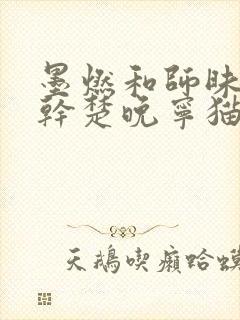 墨燃和師昧
幹楚晚寧貓
天鵝喫癩蛤蟆